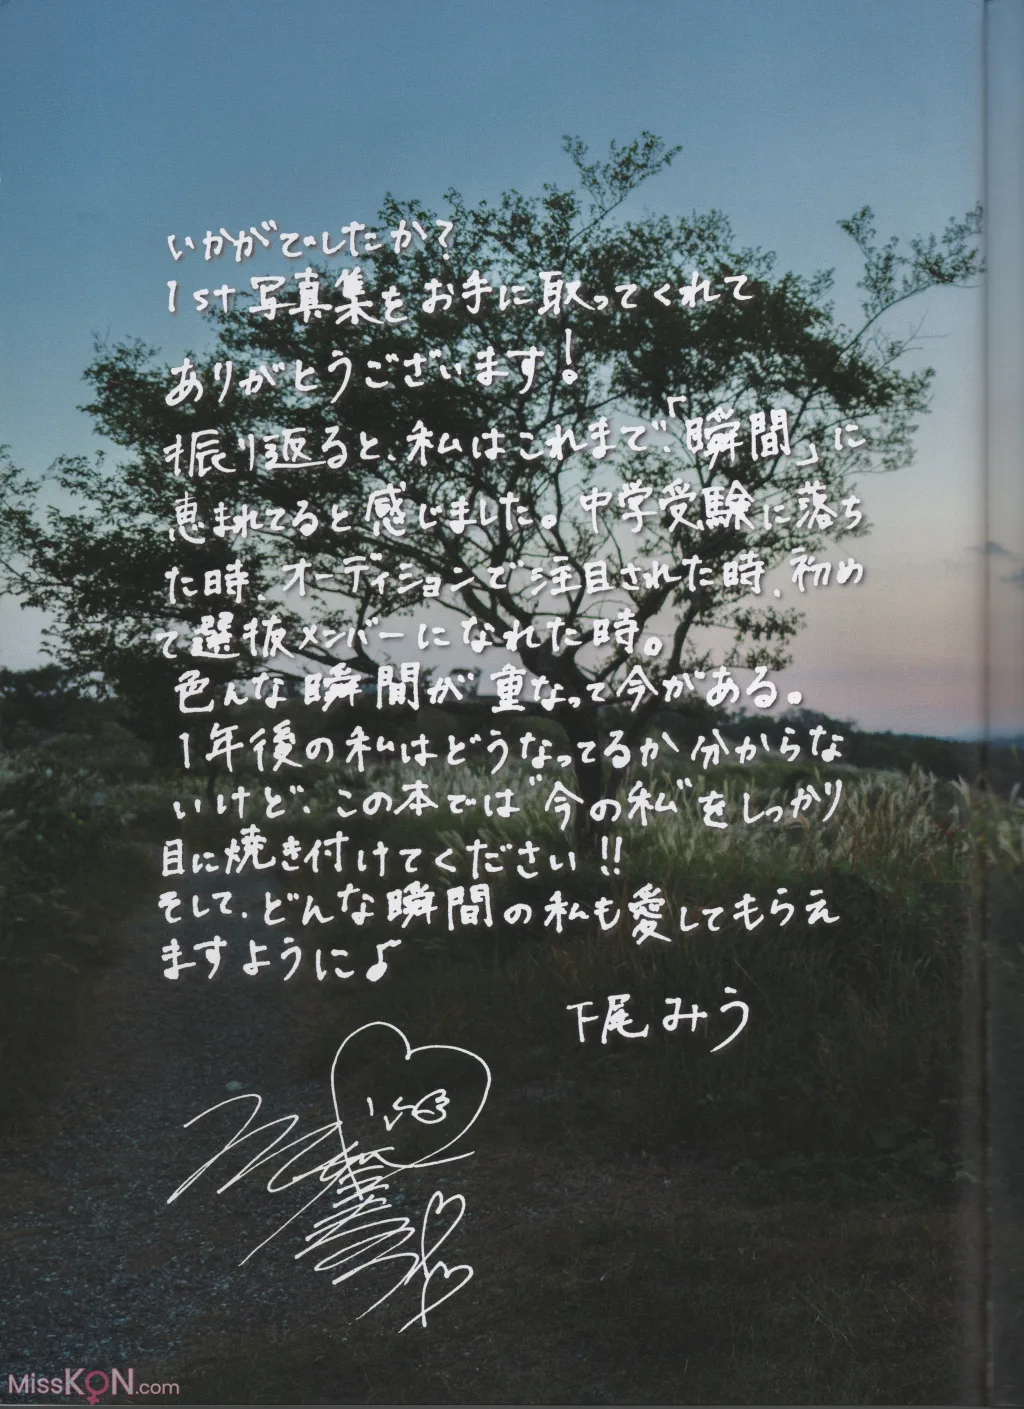 いかがでしたか?
1st写真集をお手に取ってくれて
ありがとうございます!
振り返ると、私はこれまで、「瞬間」に
恵まれてると感じました。中学受験に落ち
た時、オーディションで注目された時、初め
て選抜メンバーになれた時。
色んな瞬間が重なって今がある。
1年後の私はどうなってるか分からな
いけど、この本では"今の私"をしっかり
目に焼き付けてください!!
そして、どんな瞬間の私も愛してもらえ
ますように♪
下尾みう
MissKON.com